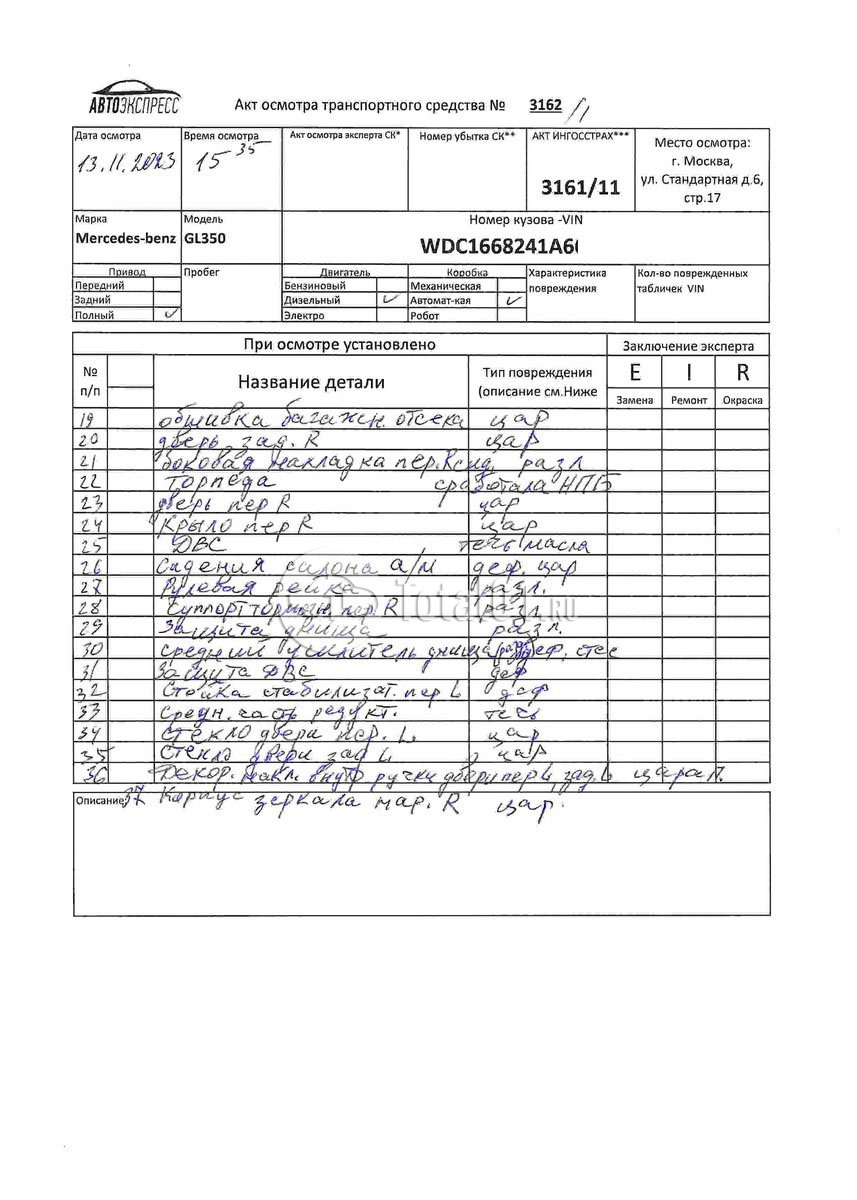 АВТОЭКСПРЕСС
Акт осмотра транспортного средства № 3162/11
Дата осмотра Время осмотра Акт осмотра эксперта СК* Номер убытка СК** АКТ ИНГОССТРАХ*** Место осмотра:
г. Москва,
ул. Стандартная д.6,
стр.17
13.11.2023 15 35 3161/11
Марка Модель Номер кузова -VIN
Mercedes-benz GL350 WDC1668241A6
Привод Пробег Двигатель Коробка Характеристика повреждения Кол-во поврежденных табличек VIN
Передний Бензиновый Механическая
Задний Дизельный ✓ Автомат-кая ✓
Полный ✓ Электро Робот
При осмотре установлено Заключение эксперта
№ п/п Название детали Тип повреждения (описание см.Ниже E I R
Замена Ремонт Окраска
19 обшивка багажн. отсека цар
20 дверь зад. R цар
21 боковая накладка пер. разл
22 Торпеда сработала НПБ
23 дверь пер R цар
24 Крыло пер R цар
25 ДВС течь масла
26 Сидения салона а/м деф. цар
27 Рулевая рейка разл.
28 Суппорт тормозн. пер R разл.
29 Защита днища разл.
30 средний усилитель днища деф,
31 Защита ДВС деф
32 Стойка стабилизат. пер L деф
33 Средн. часть редукт. течь
34 стекло двери пер. L цар
35 Стекло двери зад L цар
36 Декор. накл. внутр ручки двери пер L, зад. L царап.
Описание: 37 Корпус зеркала нар. R цар.
Total01.RU